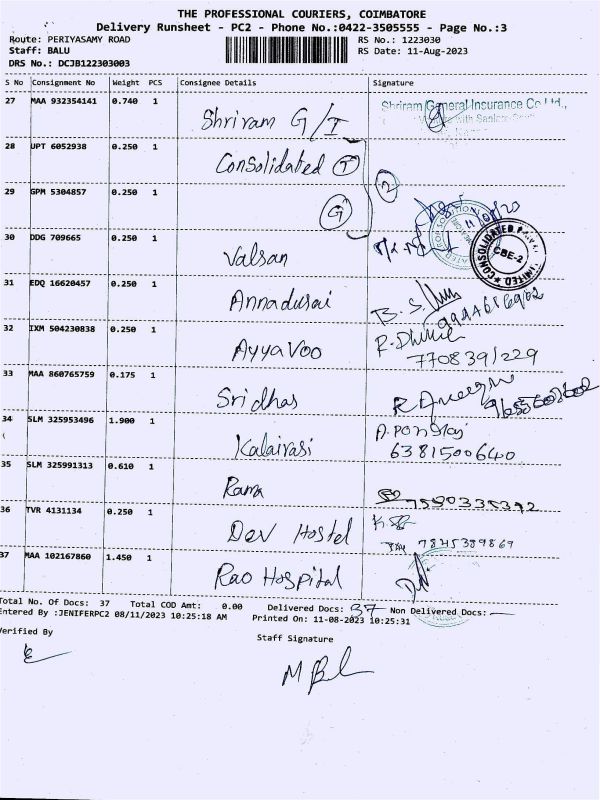 THE PROFESSIONAL COURIERS, COIMBATORE
Delivery Runsheet - PC2 - Phone No.:0422-3505555 - Page No.:3
Route: PERIYASAMY ROAD RS No.: 1223030
Staff: BALU RS Date: 11-Aug-2023
DRS No.: DCJB122303003
S No Consignment No Weight PCS Consignee Details Signature
27 MAA 932354141 0.740 1 Shriram G/I Shriram General Insurance Co Ltd.,
28 UPT 6052938 0.250 1 Consolidated T
2
29 GPM 5304857 0.250 1 G
CONSOLIDATED
CBE-2
30 DDG 709665 0.250 1 Valsan
31 EDQ 16620457 0.250 1 Annadurai B.S.
32 IXM 504230838 0.250 1 Ayyavoo
7708391229
33 MAA 860765759 0.175 1 Sridhar
34 SLM 325953496 1.900 1 Kalairasi
6381500640
35 SLM 325991313 0.610 1 Rama
36 TVR 4131134 0.250 1 Dev Hostel
7845389869
37 MAA 102167860 1.450 1 Rao Hospital
Total No. Of Docs: 37 Total COD Amt: 0.00 Delivered Docs: 37 Non Delivered Docs: —
Entered By :JENIFERPC2 08/11/2023 10:25:18 AM Printed On: 11-08-2023 10:25:31
Verified By Staff Signature